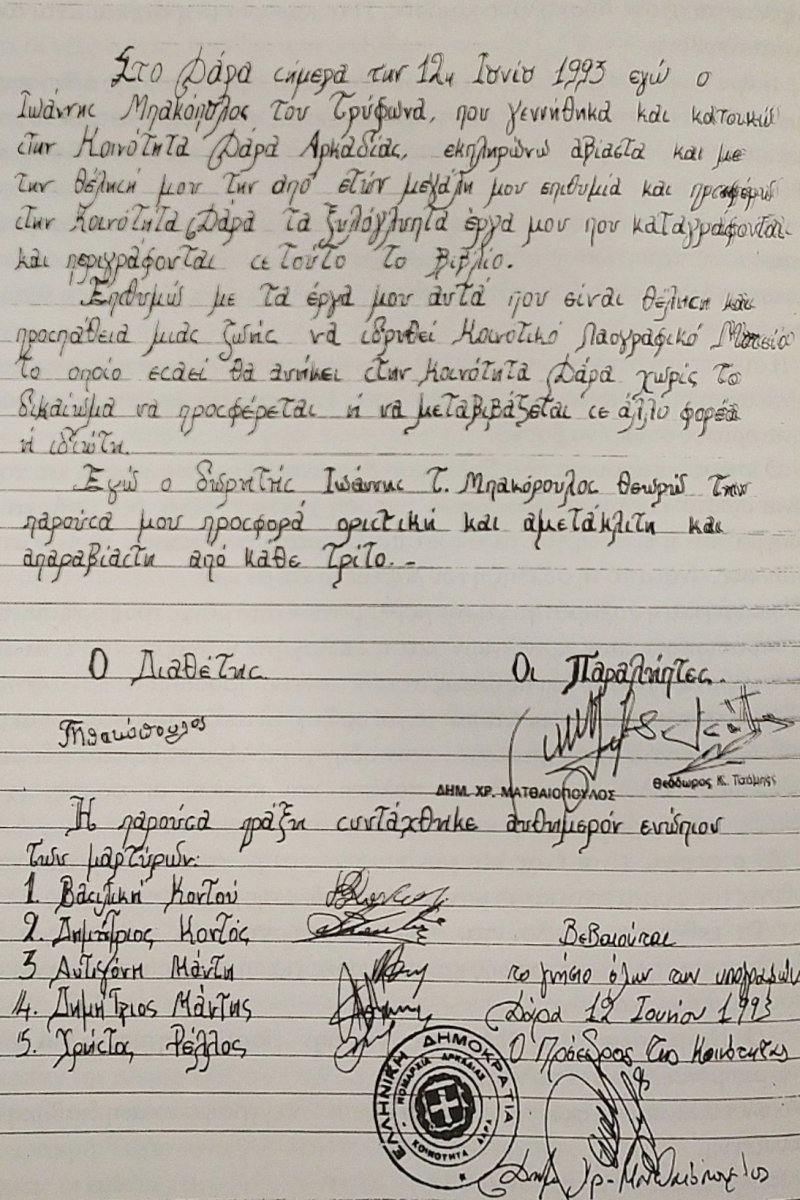 Στο Δάρα σήμερα την 12η Ιουνίο 1993 εγώ ο
Ιωάννης Μπακόπουλος του Τρύφωνα, που γεννήθηκα και κατοικώ
στην Κοινότητα Δάρα Αρκαδίας, εκπληρώνω αβίαστα και με
την θέλησή μου την από ετών μεγάλη μου επιθυμία και προσφέρω
στην Κοινότητα Δάρα τα ξυλόγλυπτα έργα μου που καταγράφονται
και περιγράφονται σε τούτο το Βιβλίο.
Επιθυμώ με τα έργα μου αυτά που είναι θέληση και
προσπάθεια μιας ζωής να ιδρυθεί Κοινοτικό Λαογραφικό Μουσείο
το οποίο εσαεί θα ανήκει στην Κοινότητα Δάρα χωρίς το
δικαίωμα να προσφέρεται ή να μεταβιβάζεται σε άλλο φορέα
ή ιδιώτη.
Εγώ ο δωρητής Ιωάννης Τ. Μπακόρουλος θεωρώ την
παρούσα μου προσφορά οριστική και αμετάκλιτη και
απαραβίαστη από κάθε τρίτο.-
Ο Διαθέτης. Οι Παραλήπτες.
Μπακόπουλος
ΔΗΜ. ΧΡ. ΜΑΤΘΑΙΟΠΟΥΛΟΣ Θεόδωρος Κ. Τσάμης
Η παρούσα πράξη συντάχθηκε αυθημερόν ενώπιον
των μαρτύρων:
1. Βασιλική Κοντού
2. Δημήτριος Κοντός Βεβαιούται
3 Αντιγόνη Μάντη το γνήσιο όλων των υπογραφών
4. Δημήτριος Μάντης Δάρα 12 Ιουνίου 1993
5. Χρήστος Ρέλλος Ο Πρόεδρος της Κοινότητας
ΕΛΛΗΝΙΚΗ ΔΗΜΟΚΡΑΤΙΑ
ΝΟΜΑΡΧΙΑ ΑΡΚΑΔΙΑΣ
ΚΟΙΝΟΤΗΤΑ ΔΑΡΑ
Δημ Χρ. Ματθαιόπουλος